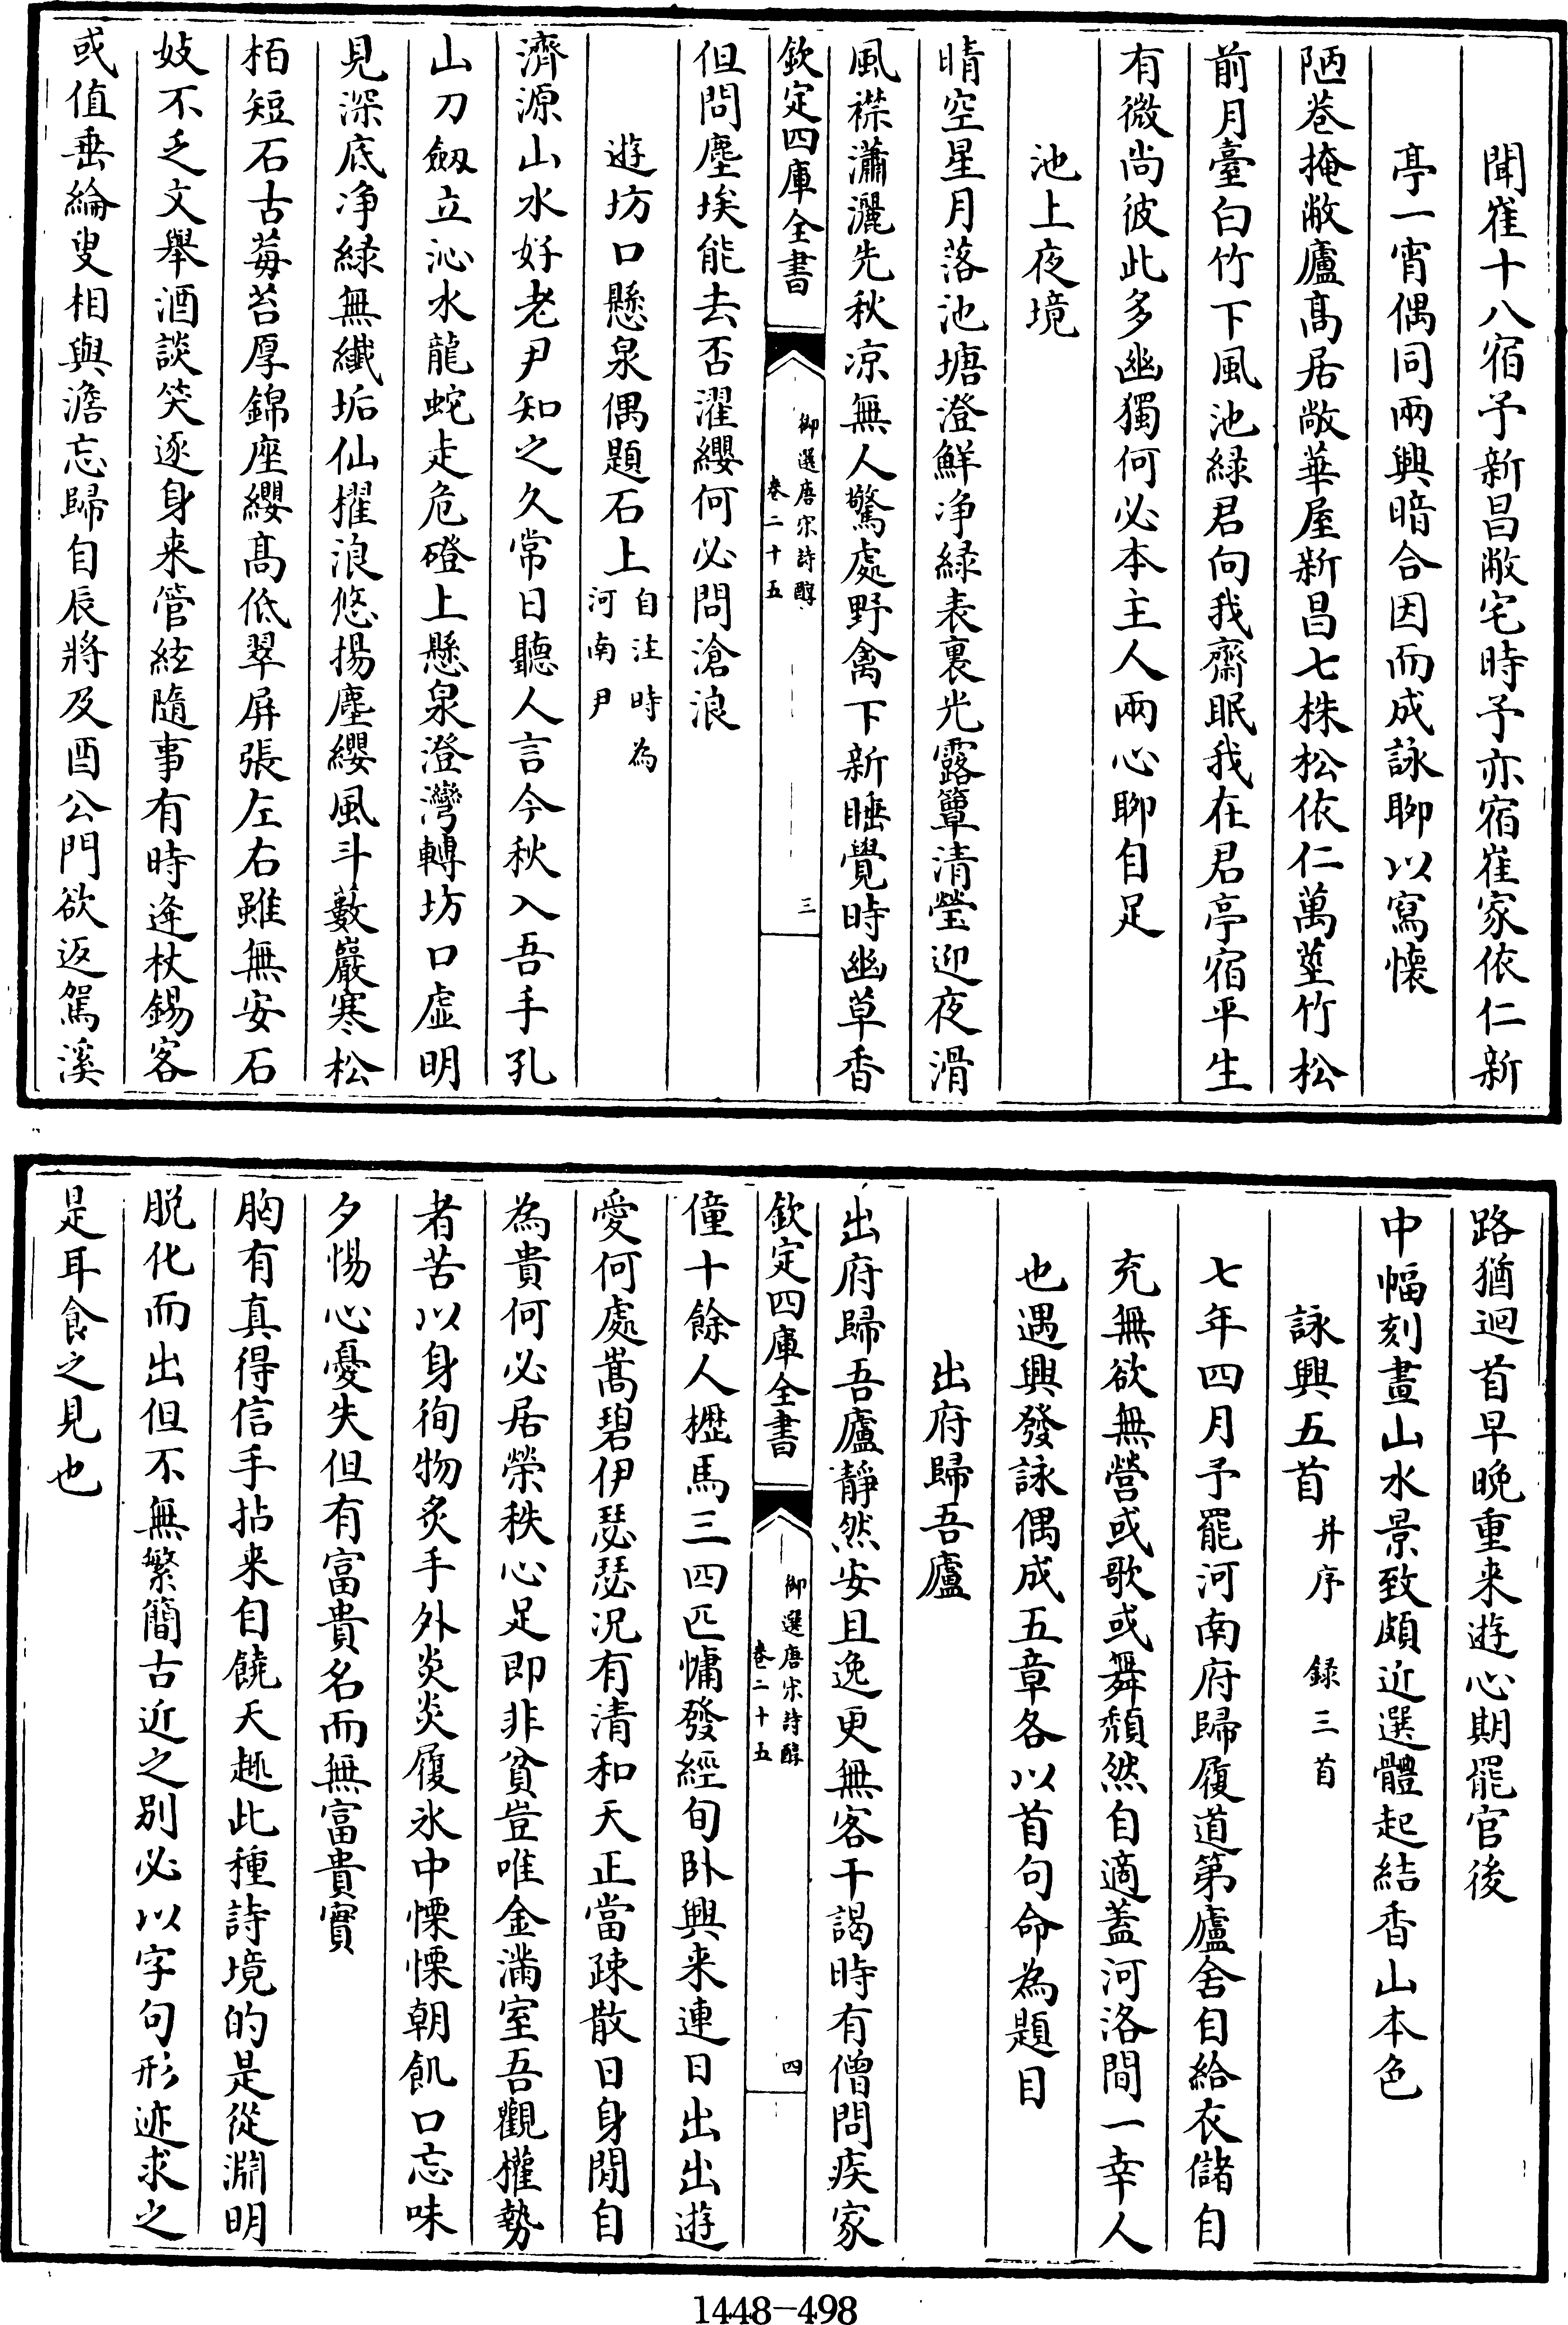 聞崔十八宿予新昌敝宅時予亦宿崔家依仁新
亭一宵偶同兩興暗合因而成詠聊以寫懷
陋巷掩敝廬髙居敞華屋新昌七株松依仁萬莖竹松
前月臺白竹下風池緑君向我齋眠我在君亭宿平生
有微尚彼此多幽獨何必本主人兩心聊自足
池上夜境
晴空星月落池塘澄鮮浄緑表裏光露簟清瑩迎夜滑
風襟瀟灑先秋凉無人驚處野禽下新睡覺時幽草香
欽定四庫全書
御選唐宋詩醇
卷二十五
三
但問塵埃能去否濯纓何必問滄浪
遊坊口懸泉偶題石上自注時為
河南尹
濟源山水好老尹知之久常日聽人言今秋入吾手孔
山刀劔立沁水龍蛇走危磴上懸泉澄灣轉坊口虚明
見深底浄緑無纖垢仙櫂浪悠揚塵纓風斗藪巖寒松
栢短石古莓苔厚錦座纓髙低翠屏張左右雖無安石
妓不乏文舉酒談笑逐身来管絃隨事有時逄杖錫客
或值垂綸叟相與澹忘歸自辰將及酉公門欲返駕溪
路猶迴首早晚重来遊心期罷官後
中幅刻畫山水景致頗近選體起結香山本色
詠興五首并序 録三首
七年四月予罷河南府歸履道第廬舍自給衣儲自
充無欲無營或歌或舞頽然自適蓋河洛間一幸人
也遇興發詠偶成五章各以首句命為題目
出府歸吾廬
出府歸吾廬靜然安且逸更無客干謁時有僧問疾家
欽定四庫全書
御選唐宋詩醇
卷二十五
四
僮十餘人櫪馬三四匹慵發經旬卧興来連日出出遊
愛何處嵩碧伊瑟瑟况有清和天正當疎散日身閒自
為貴何必居榮秩心足即非貧豈唯金滿室吾觀權勢
者苦以身徇物炙手外炎炎履氷中慄慄朝飢口忘味
夕惕心憂失但有富貴名而無富貴實
胸有真得信手拈来自饒天趣此種詩境的是從淵明
脱化而出但不無繁簡古近之别必以字句形迹求之
是耳食之見也
1448-498